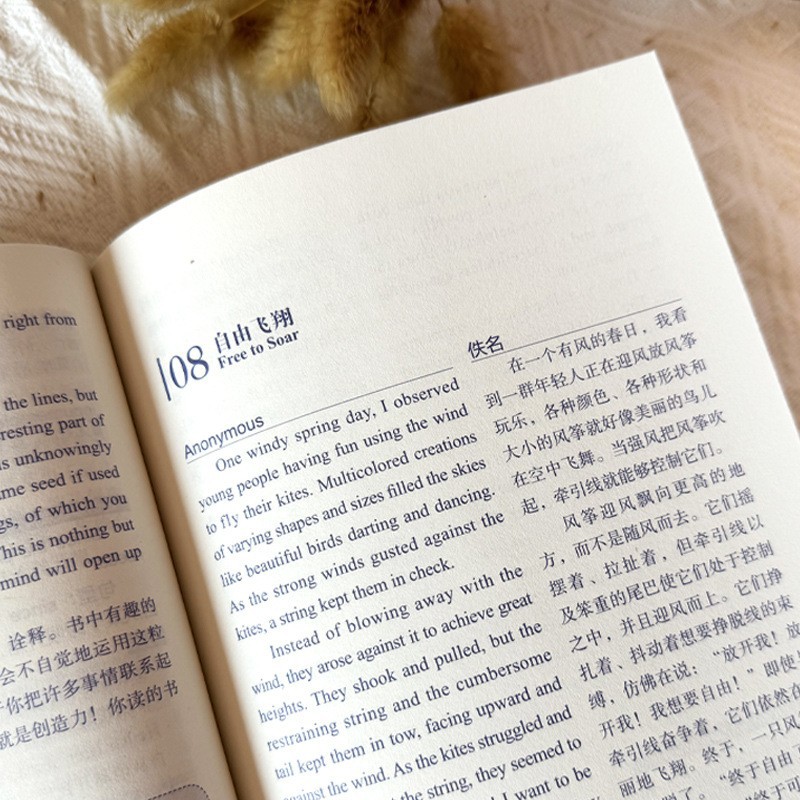 right from
the lines, but
resting part of
is unknowingly
me seed if used
gs, of which you
This is nothing but
mind will open up
诠释。书中有趣的
会不自觉地运用这粒
你把许多事情联系起
就是创造力！你读的书
08
自由飞翔
Free to Soar
Anonymous
One windy spring day, I observed
young people having fun using the wind
to fly their kites. Multicolored creations
of varying shapes and sizes filled the skies
like beautiful birds darting and dancing.
As the strong winds gusted against the
kites, a string kept them in check.
Instead of blowing away with the
wind, they arose against it to achieve great
heights. They shook and pulled, but the
restraining string and the cumbersome
tail kept them in tow, facing upward and
against the wind. As the kites struggled and
the string, they seemed to
I want to be
佚名
在一个有风的春日，我看
到一群年轻人正在迎风放风筝
玩乐，各种颜色、各种形状和
大小的风筝就好像美丽的鸟儿
在空中飞舞。当强风把风筝吹
起，牵引线就能够控制它们。
风筝迎风飘向更高的地
方，而不是随风而去。它们摇
摆着、拉扯着，但牵引线以
及笨重的尾巴使它们处于控制
之中，并且迎风而上。它们挣
扎着、抖动着想要挣脱线的束
缚，仿佛在说：“放开我！放
开我！我想要自由！”即使
牵引线奋争着，它们依然在
丽地飞翔。终于，一只风
“终于自由